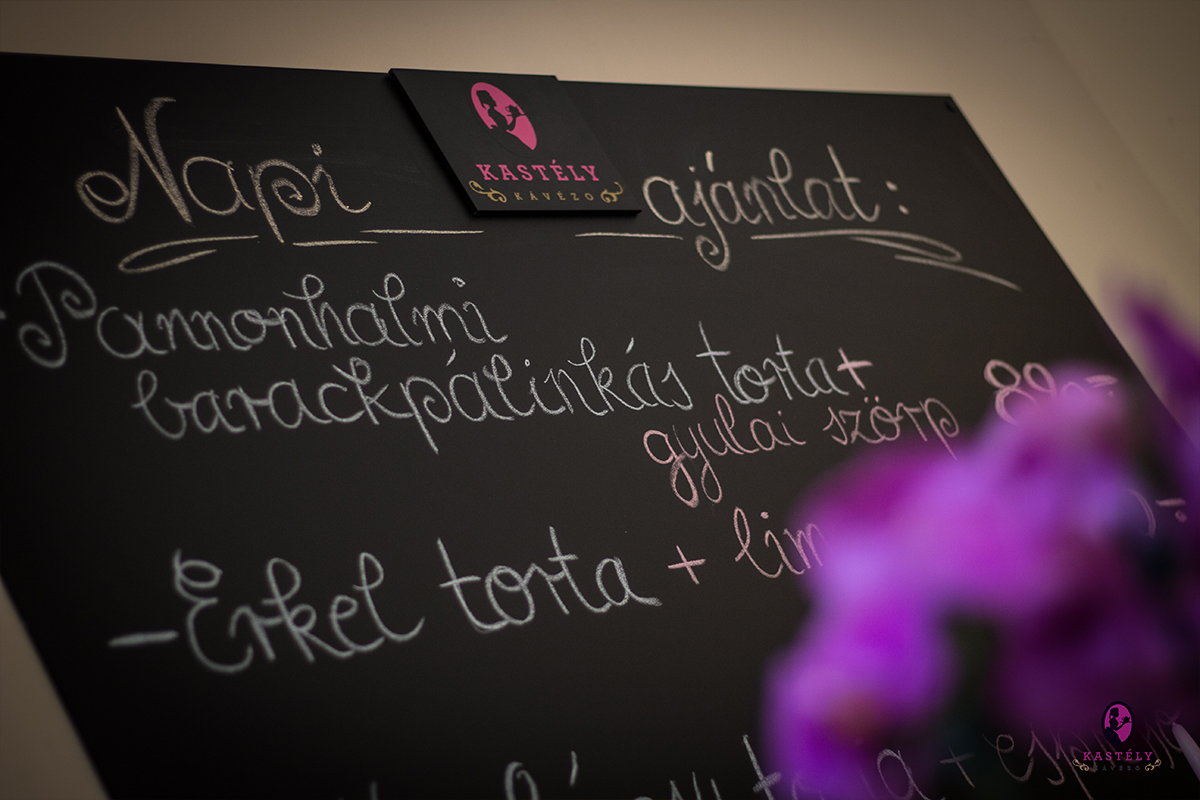 KASTÉLY
KÁVÉZÓ
Napi ajánlat:
-Pannonhalmi
barackpálinkás torta+
gyulai szörp
-Erkel torta +
torta +
KASTÉLY
KÁVÉZÓ